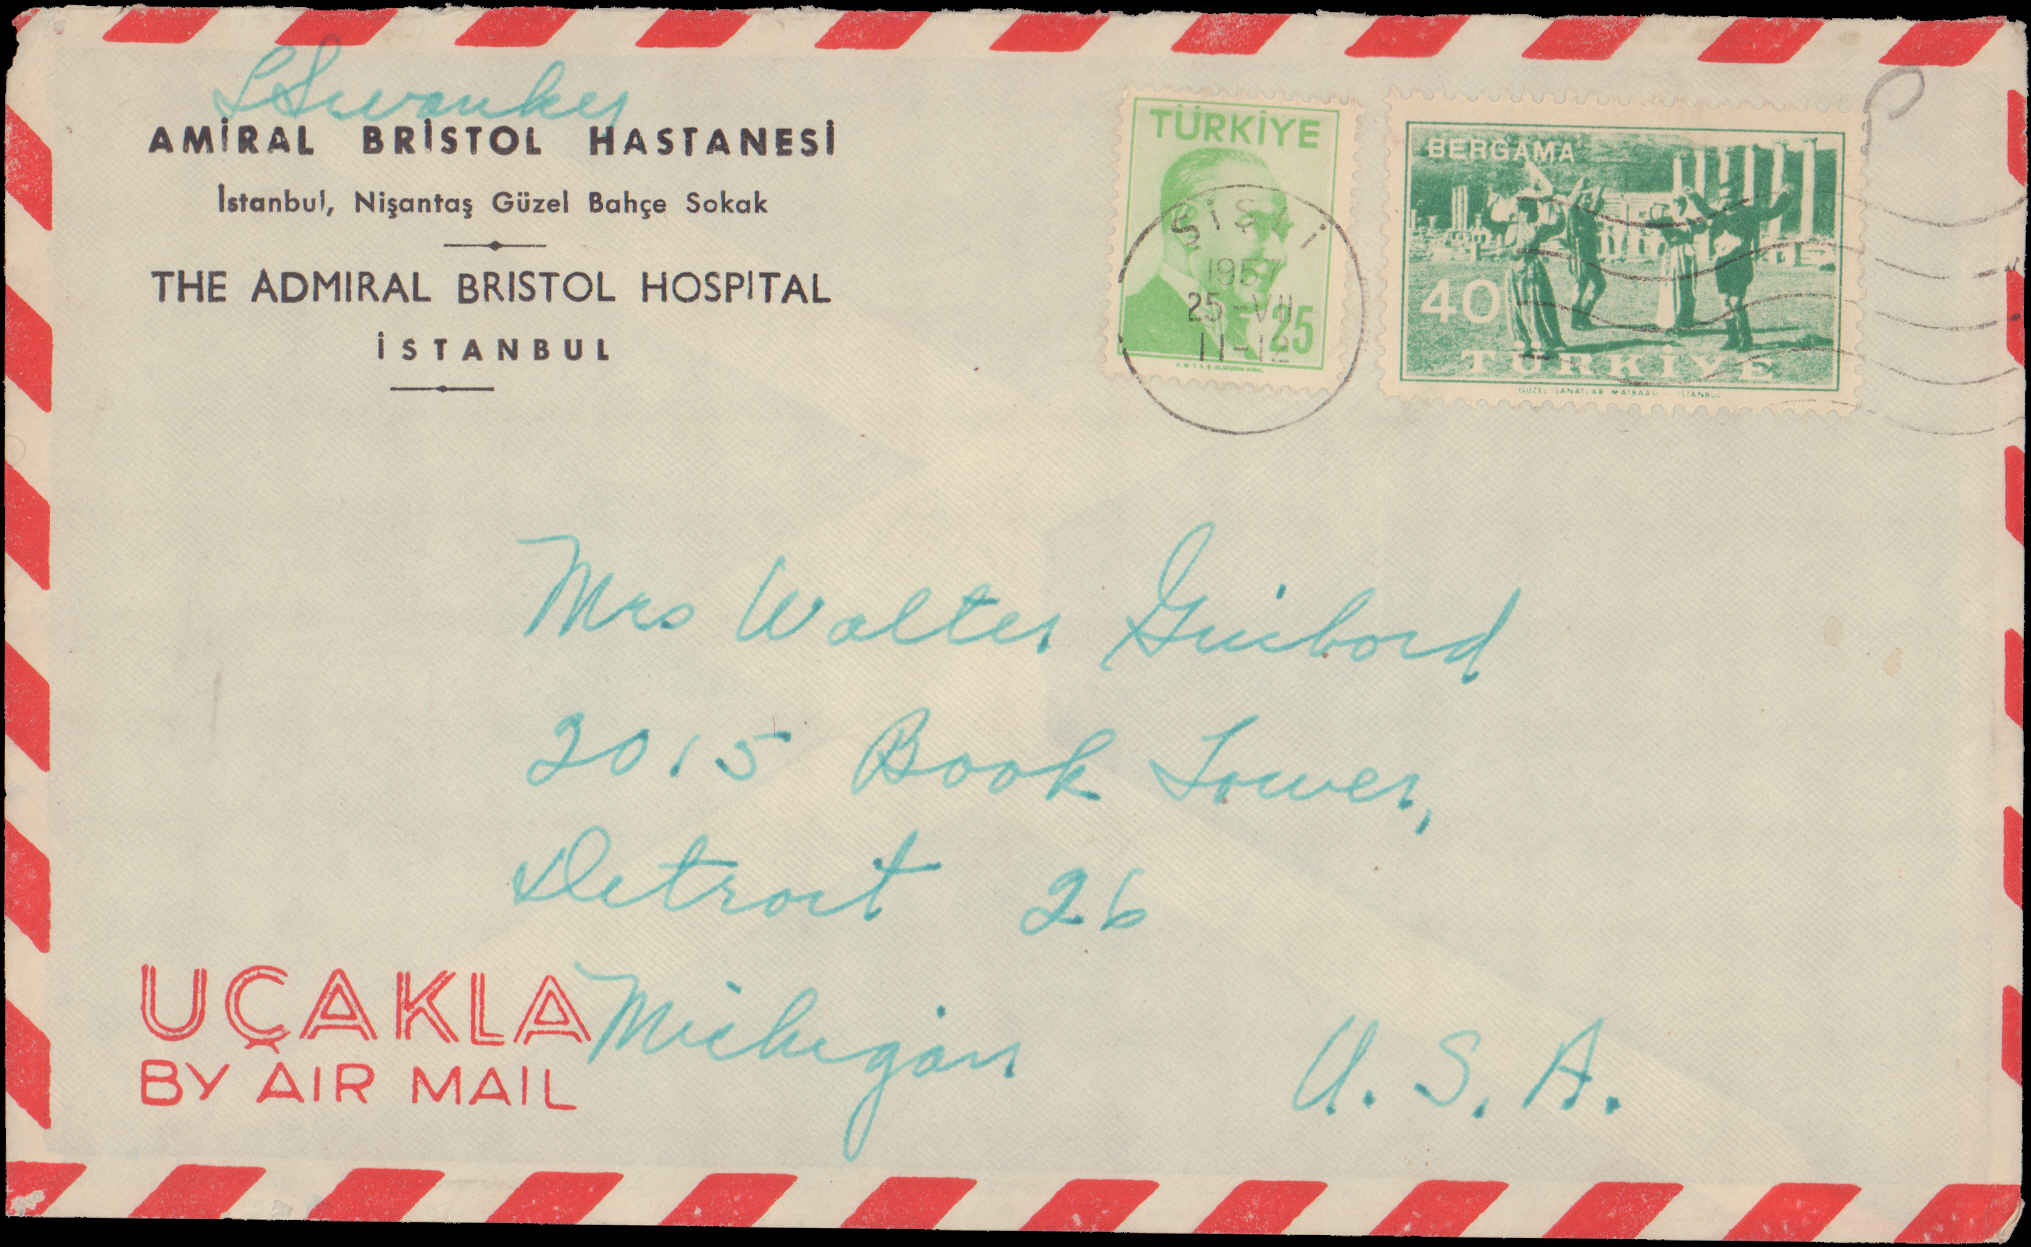 LSwankey
AMİRAL BRİSTOL HASTANESİ
İstanbul, Nişantaş Güzel Bahçe Sokak
THE ADMIRAL BRISTOL HOSPITAL
İSTANBUL
TÜRKİYE
25
ŞİŞLİ
1957
25-VII
11-12
BERGAMA
40
TÜRKİYE
GÜZEL SANATLAR MATBAASI İSTANBUL
Mrs Walter Guibord
2015 Book Tower,
Detroit 26
Michigan U.S.A.
UÇAKLA
BY AIR MAIL